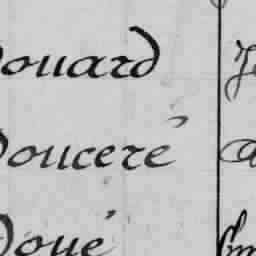 Douard
Douceré
Doué